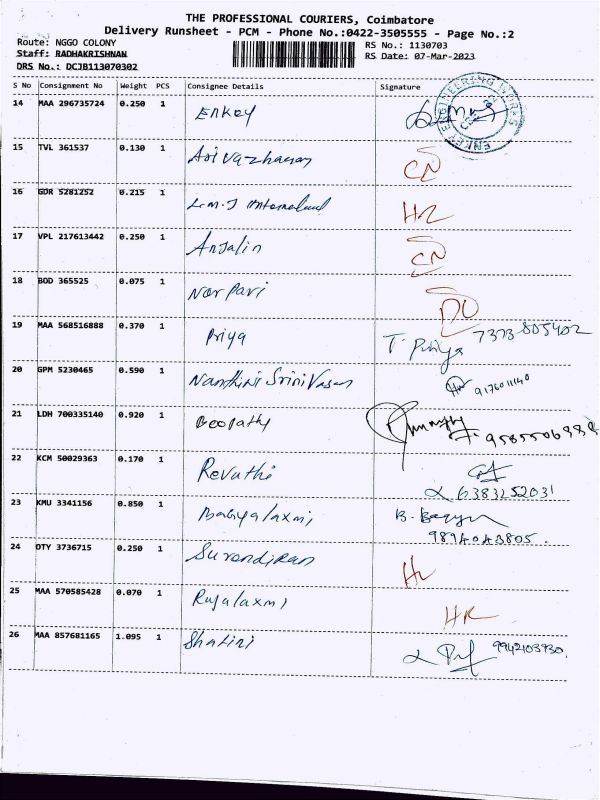 THE PROFESSIONAL COURIERS, Coimbatore
Delivery Runsheet - PCM - Phone No.:0422-3505555 - Page No.:2
Route: NGGO COLONY
RS No.: 1130703
Staff: RADHAKRISHNAN
RS Date: 07-Mar-2023
DRS No.: DCJB113070302
S No Consignment No Weight PCS Consignee Details Signature
14 MAA 296735724 0.250 1 Enkey
ENKEY ENGINEERING WORKS
15 TVL 361537 0.130 1 CN
16 GDR 5281252 0.215 1 L.M.J HR
17 VPL 217613442 0.250 1 Anjalin CN
18 BOD 365525 0.075 1 Nor Pavi DU
19 MAA 568516888 0.370 1 Priya T. Priya 7373805402
20 GPM 5230465 0.590 1 Nanthini Srinivasan
21 LDH 700335140 0.920 1 Boopathy
22 KCM 50029363 0.170 1 Revathi
6383252031
23 KMU 3341156 0.850 1 Bagyalaxmi B.
9894043805.
24 OTY 3736715 0.250 1 Surendiran HR
25 MAA 570585428 0.070 1 Rajalaxmi HR
26 MAA 857681165 1.095 1 Shalini 9942103930.